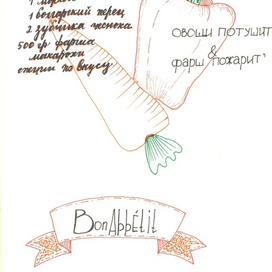 1 морковь
1 болгарский перец
2 зубчика чеснока
500 гр фарша
макароны
специи по вкусу
ОВОЩИ ПОТУШИТ
&
ФАРШ ПОЖАРИТ
Bon Appétit